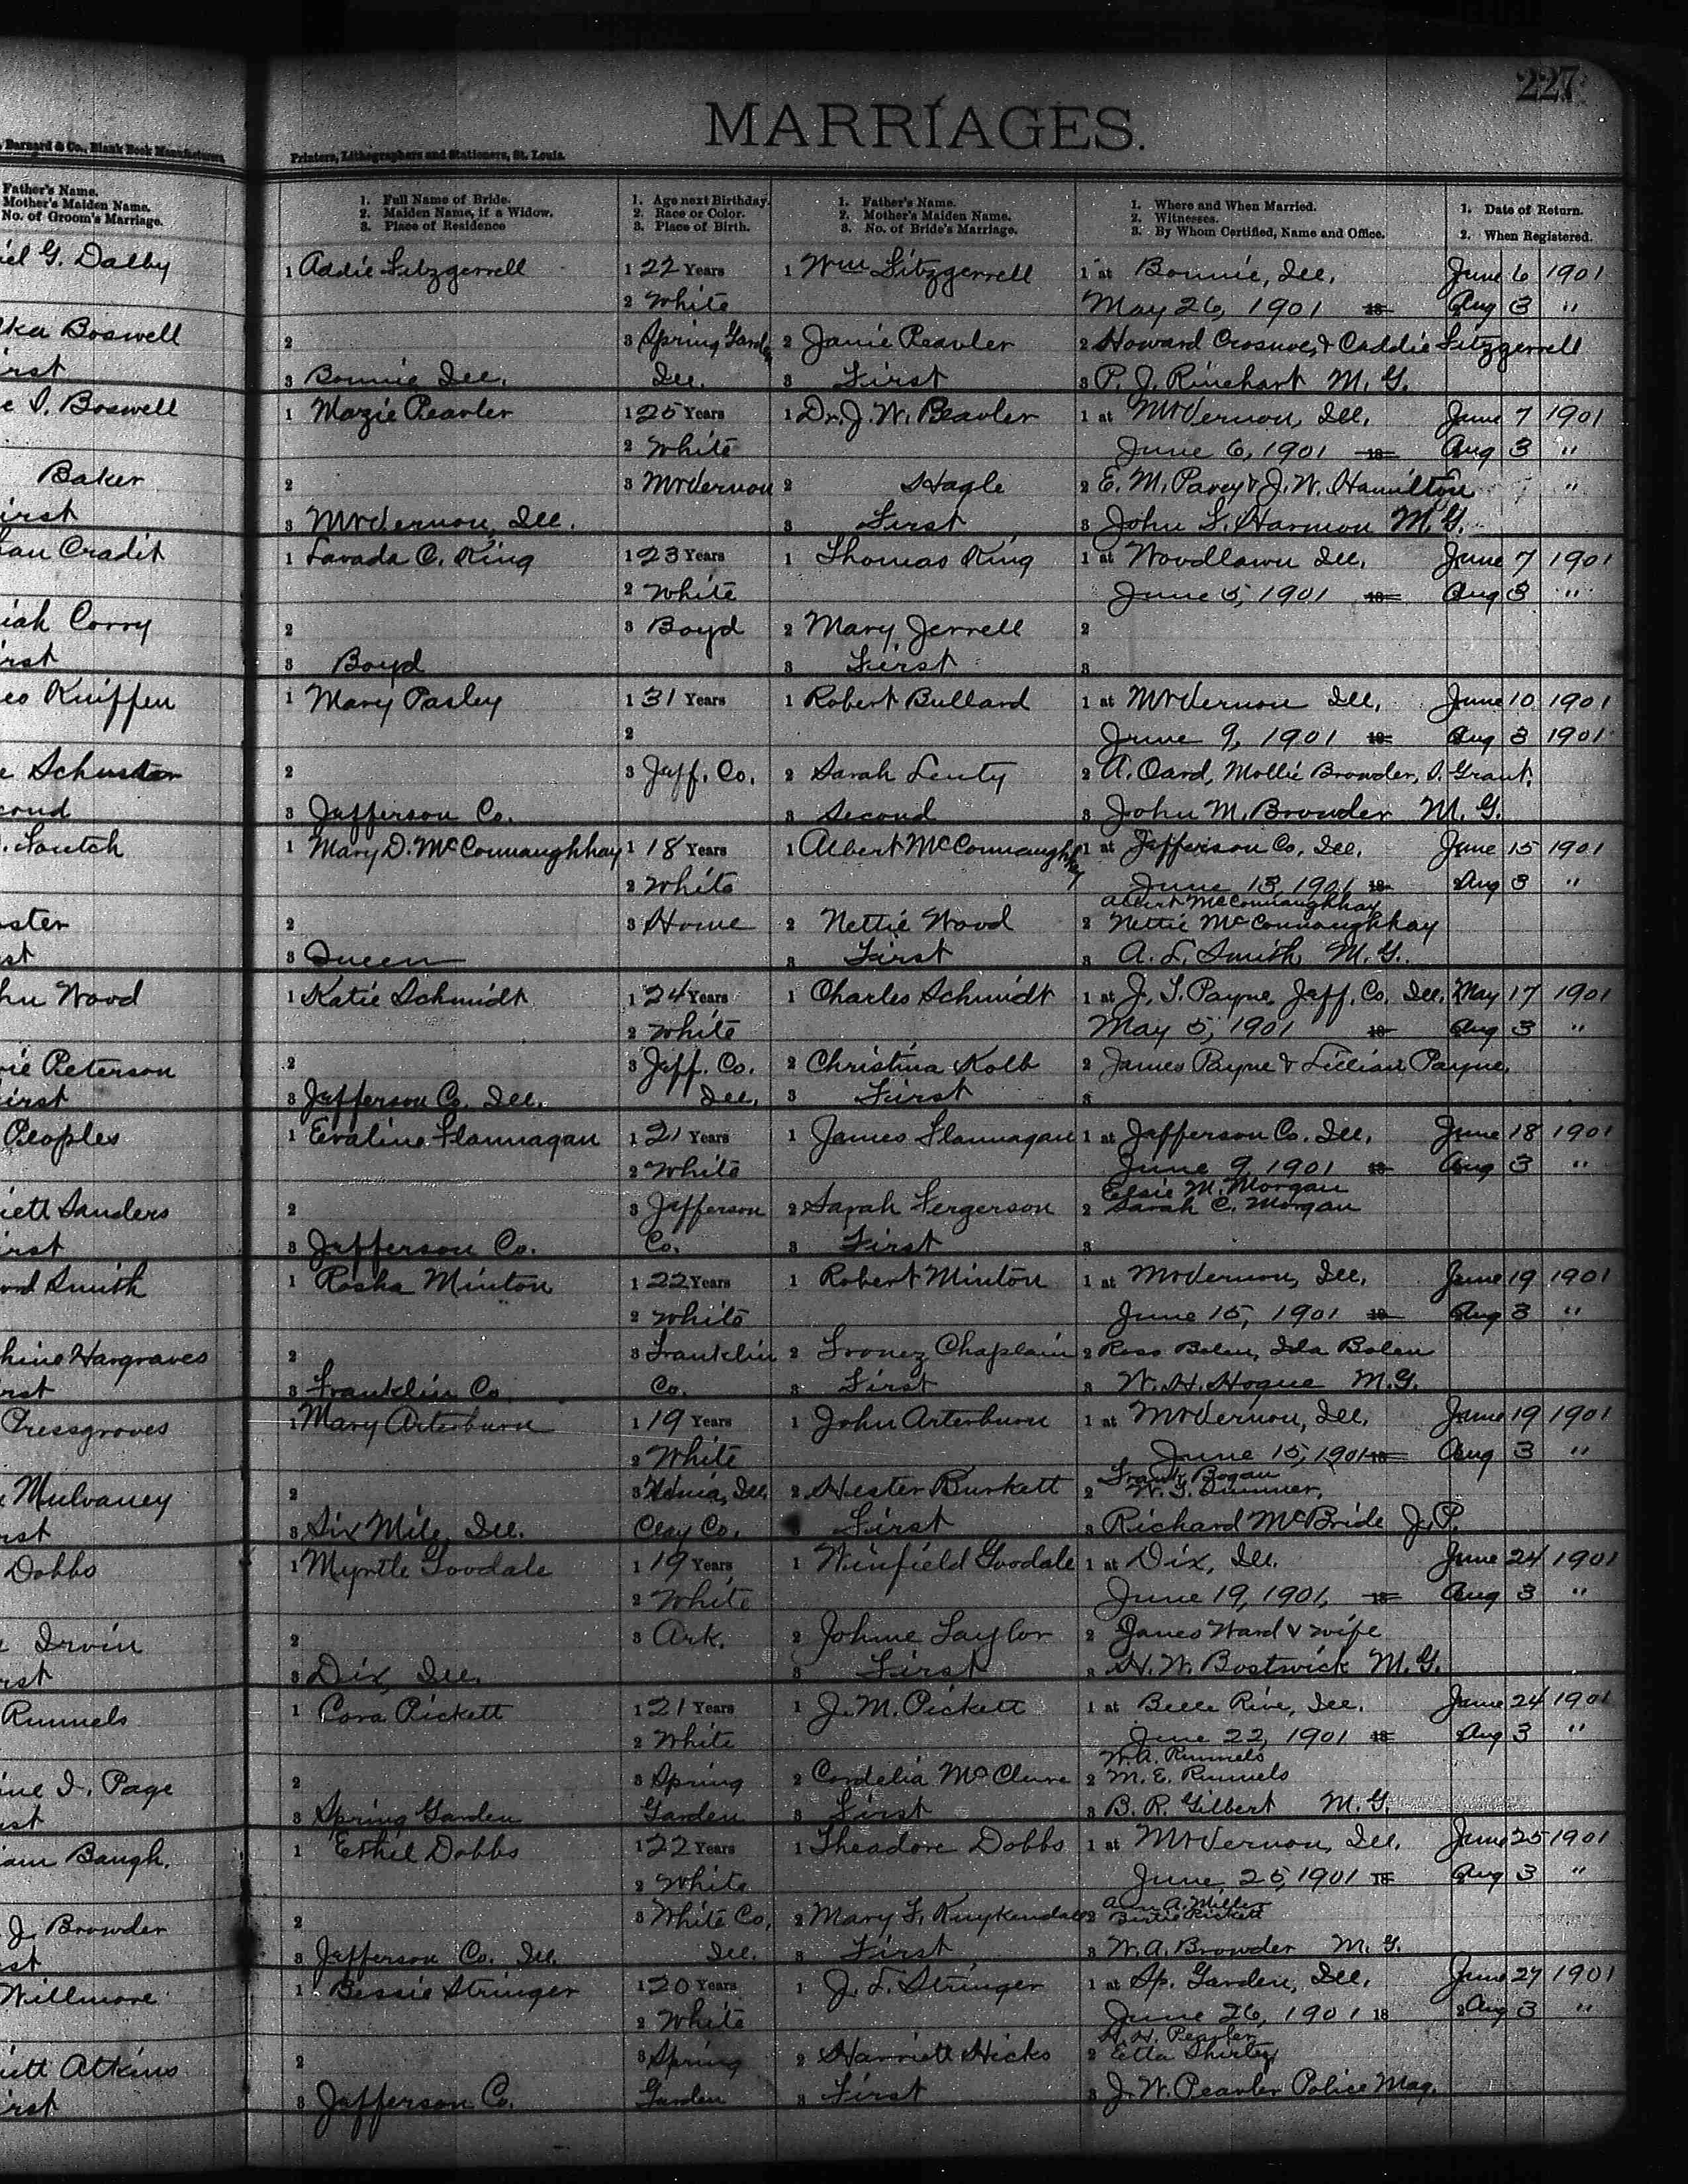 227
MARRIAGES.
Barnard & Co., Blank Book Manufacturers,
Printers, Lithographers and Stationers, St. Louis.
Father's Name.
Mother's Maiden Name.
No. of Groom's Marriage.
1. Full Name of Bride.
2. Maiden Name, if a Widow.
3. Place of Residence
1. Age next Birthday.
2. Race or Color.
3. Place of Birth.
1. Father's Name.
2. Mother's Maiden Name.
3. No. of Bride's Marriage.
1. Where and When Married.
2. Witnesses.
3. By Whom Certified, Name and Office.
1. Date of Return.
2. When Registered.
iel G. Dalby 1 Addie Fitzgerrell 1 22 Years 1 Wm Fitzgerrell 1 at Bonnie, Ill. June 6 1901
2 White May 26, 1901 18 Aug 3 "
ka Boswell 2 3 Spring Garden 2 Janie Peavler 2 Howard Crosnoe, & Caddie Fitzgerrell
irst 3 Bonnie Ill. Ill. 3 First 3 P. J. Rinehart M. G.
e S. Boswell 1 Mazie Peavler 1 25 Years 1 Dr. J. W. Peavler 1 at Mt Vernon, Ill. June 7 1901
2 White June 6, 1901 18 Aug 3 "
Baker 2 3 Mt Vernon 2 Hagle 2 E. M. Pavey & J. W. Hamilton "
irst 3 Mt Vernon, Ill. 3 First 3 John F. Harmon M. G.
an Cradit 1 Lavada C. King 1 23 Years 1 Thomas King 1 at Woodlawn Ill. June 7 1901
2 White June 5, 1901 18 Aug 3 "
iah Corry 2 3 Boyd 2 Mary Jerrell 2
rst 3 Boyd 3 First 3
eo Kniffen 1 Mary Pasley 1 31 Years 1 Robert Bullard 1 at Mt Vernon Ill. June 10 1901
2 June 9, 1901 18 Aug 3 1901
e Schuster 2 3 Jeff. Co. 2 Sarah Lenty 2 A. Card, Mollie Browder, S. Grant.
cond 3 Jefferson Co. 3 Second 3 John M. Browder M. G.
. Foutch 1 Mary D. McConnaughhay 1 18 Years 1 Albert McConnaughhay 1 at Jefferson Co. Ill. June 15 1901
2 White June 13, 1901 18 Aug 3 "
Albert McConnaughhay
ster 2 3 Home 2 Nettie Wood 2 Nettie McConnaughhay
st 3 Queen 3 First 3 A. L. Smith M. G.
hn Wood 1 Katie Schmidt 1 24 Years 1 Charles Schmidt 1 at J. T. Payne, Jeff. Co. Ill. May 17 1901
2 White May 5, 1901 18 Aug 3 "
ie Peterson 2 3 Jeff. Co. 2 Christina Kolb 2 James Payne & Lillian Payne.
irst 3 Jefferson Co. Ill. Ill. 3 First 3
Peoples 1 Evaline Flannagan 1 21 Years 1 James Flannagan 1 at Jefferson Co. Ill. June 18 1901
2 White June 9, 1901 18 Aug 3 "
Elsie M. Morgan
iett Sanders 2 3 Jefferson 2 Sarah Fergerson 2 Sarah C. Morgan
irst 3 Jefferson Co. Co. 3 First 3
ord Smith 1 Rosha Minton 1 22 Years 1 Robert Minton 1 at Mt Vernon, Ill. June 19 1901
2 White June 15, 1901 18 Aug 3 "
hine Hargraves 2 3 Franklin 2 Chaplain 2 Ross Bolen, Ida Bolen
rst 3 Franklin Co. Co. 3 First 3 W. H. Hogue M. G.
Pressgroves 1 Mary Arterburn 1 19 Years 1 John Arterburn 1 at Mt Vernon, Ill. June 19 1901
2 White June 15, 1901 18 Aug 3 "
Frank Bogan
Mulvaney 2 3 Xenia, Ill. 2 Hester Burkett 2 W. T. Summer,
rst 3 Six Mile, Ill. Clay Co. 3 First 3 Richard McBride J. P.
Dobbs 1 Myrtle Goodale 1 19 Years 1 Winfield Goodale 1 at Dix, Ill. June 24 1901
2 White June 19, 1901, 18 Aug 3 "
Irvin 2 3 Ark. 2 Johnie Taylor 2 James Ward & wife
rst 3 Dix, Ill. 3 First 3 H. W. Bostwick M. G.
Runnels 1 Cora Pickett 1 21 Years 1 J. M. Pickett 1 at Belle Rive, Ill. June 24 1901
2 White June 22, 1901 18 Aug 3 "
W. A. Runnels
ine I. Page 2 3 Spring 2 Cordelia McClure 2 M. E. Runnels
st 3 Spring Garden Garden 3 First 3 B. R. Gilbert M. G.
iam Baugh. 1 Ethel Dobbs 1 22 Years 1 Theadore Dobbs 1 at Mt Vernon, Ill. June 25 1901
2 White June 25, 1901 18 Aug 3 "
A. Miller
J. Browder 2 3 White Co. 2 Mary F. Kuykendall 2 Bertie Pickett
st 3 Jefferson Co. Ill. Ill. 3 First 3 W. A. Browder M. G.
Willmore 1 Bessie Stringer 1 20 Years 1 J. L. Stringer 1 at Sp. Garden, Ill. June 27 1901
2 White June 26, 1901 18 2 Aug 3 "
H. H. Peavler
iett Atkins 2 3 Spring 2 Harriett Hicks 2 Etta Shirley
irst 3 Jefferson Co. Garden 3 First 3 J. W. Peavler Police Mag.